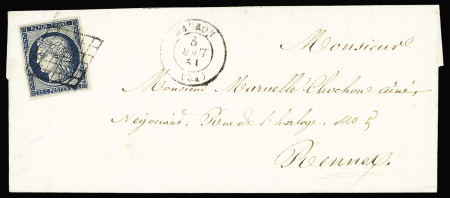 REPUB. FRANC.
25 POSTES 25
MAURON
5
AOUT
51
(54)
Monsieur
Monsieur Maruelle Chochon ainé,
Négociant, Rue de l'horloge, No 5
Rennes.